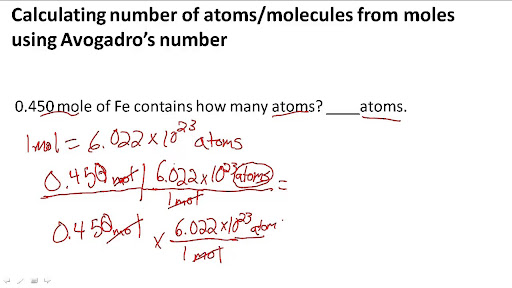 Calculating number of atoms/molecules from moles
using Avogadro's number
0.450 mole of Fe contains how many atoms? ____atoms.
1mol = 6.022 x 10^23 atoms
0.450 mol | 6.022 x 10^23 atoms =
1 mol
0.450 mol x 6.022 x 10^23 atom
1 mol